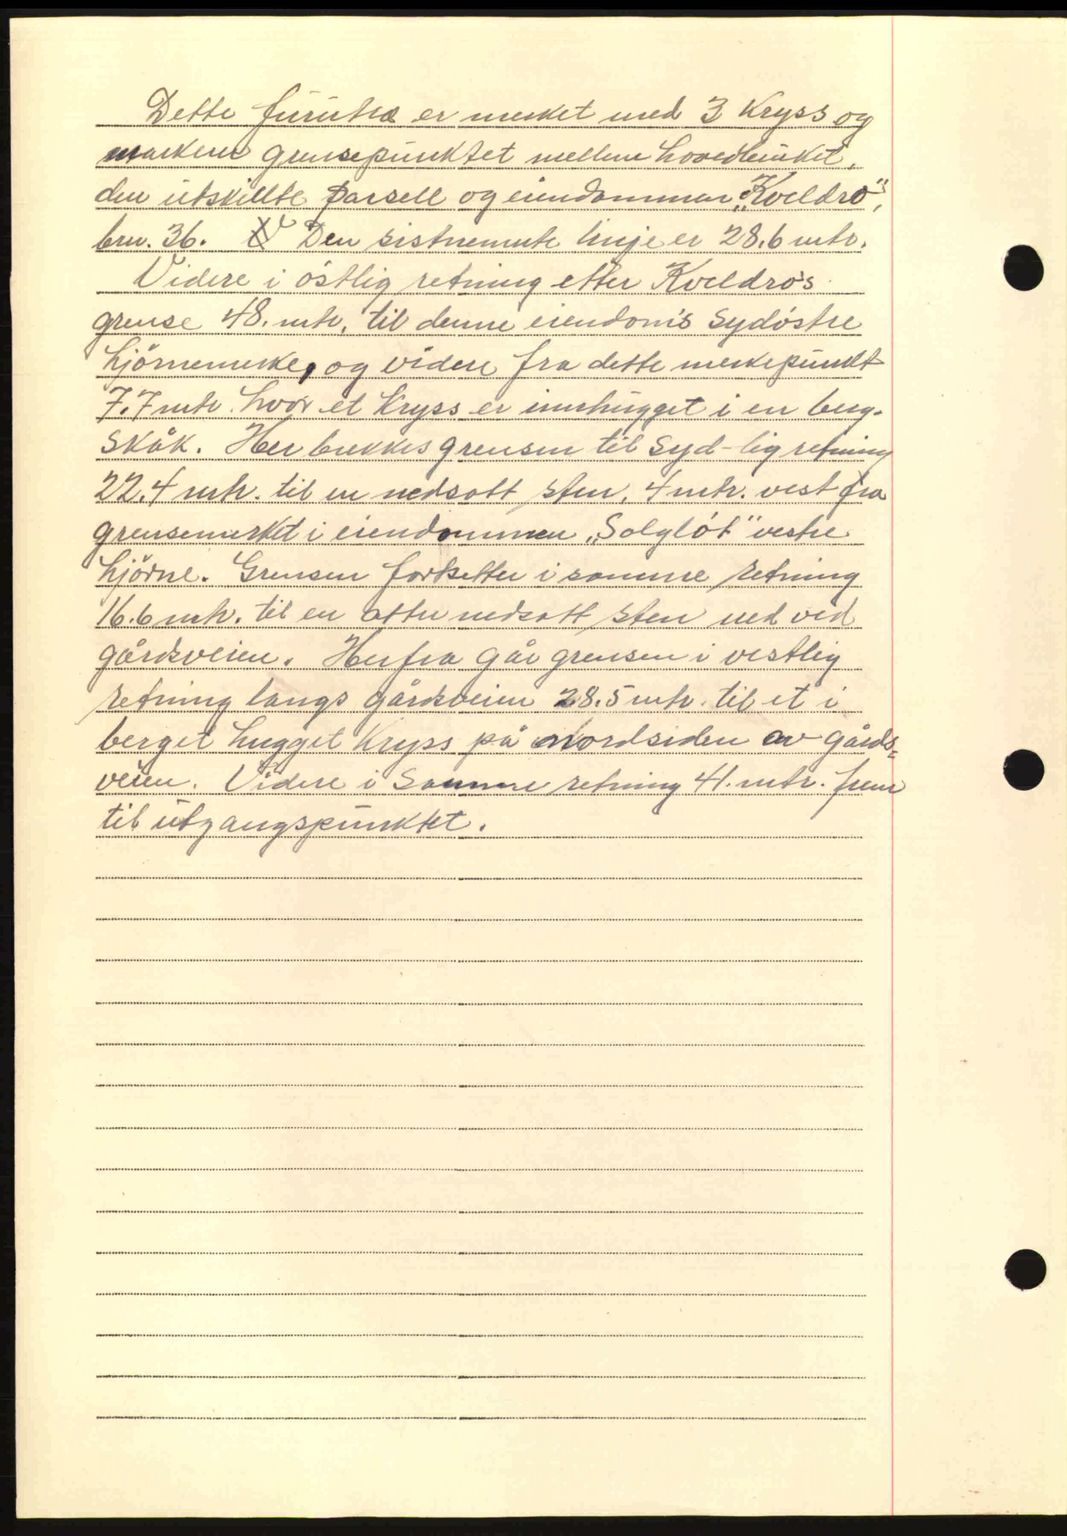 Dette furutre er merket med 3 kryss og
markerer grensepunktet mellem hovedbruket,
den utskillte parsell og eiendommen „Kveldro",
brn. 36. Den sistnemnte linje er 28.6 mtr.
Videre i östlig retning etter Kveldro's
grense 48. mtr. til denne eiendom's sydöstre
hjörnemerke, og videre fra dette merkepunkt
7.7 mtr. hvor et kryss er innhugget i en berg-
skåk. Her brekkes grensen til syd-lig retning
22.4 mtr. til en nedsatt sten, 4 mtr. vest fra
grensemerket i eiendommen „Solglöt" vestre
hjörne. Grensen fortsetter i samme retning
16.6 mtr. til en atter nedsatt sten ned ved
gårdsveien. Herfra går grensen i vestlig
retning langs gårdsveien 28.5 mtr. til et i
berget hugget kryss på Nordsiden av gårds=
veien. Videre i samme retning 41. mtr. frem
til utgangspunktet.